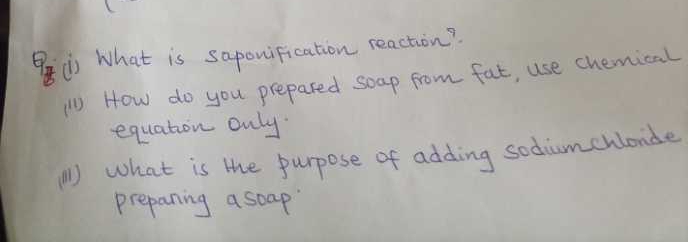 Q: (i) What is saponification reaction?.
(ii) How do you prepared soap from fat, use chemical
equation only.
(iii) what is the purpose of adding sodium chloride
preparing a soap.